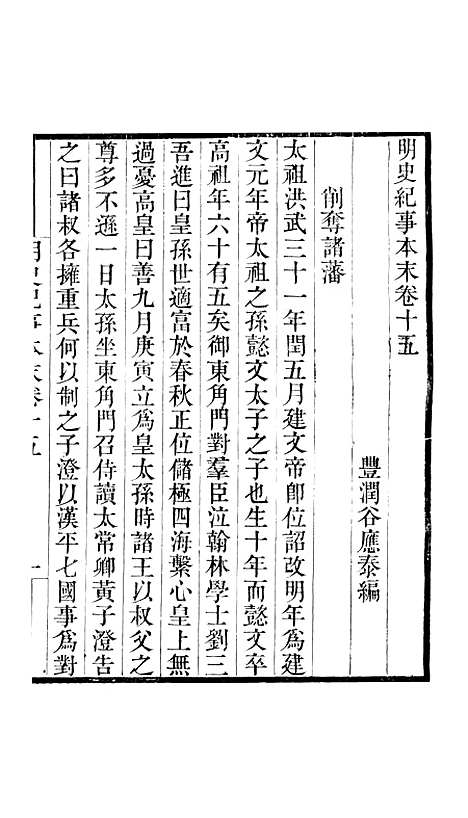 明史紀事本末卷十五
豐潤谷應泰編
削奪諸藩
太祖洪武三十一年閏五月建文帝卽位詔改明年爲建
文元年帝太祖之孫懿文太子之子也生十年而懿文卒
高祖年六十有五矣御東角門對羣臣泣翰林學士劉三
吾進曰皇孫世適富於春秋正位儲極四海繫心皇上無
過憂高皇曰善九月庚寅立爲皇太孫時諸王以叔父之
尊多不遜一日太孫坐東角門召侍讀太常卿黃子澄告
之曰諸叔各擁重兵何以制之子澄以漢平七國事爲對
明史紀事本末卷十五
一